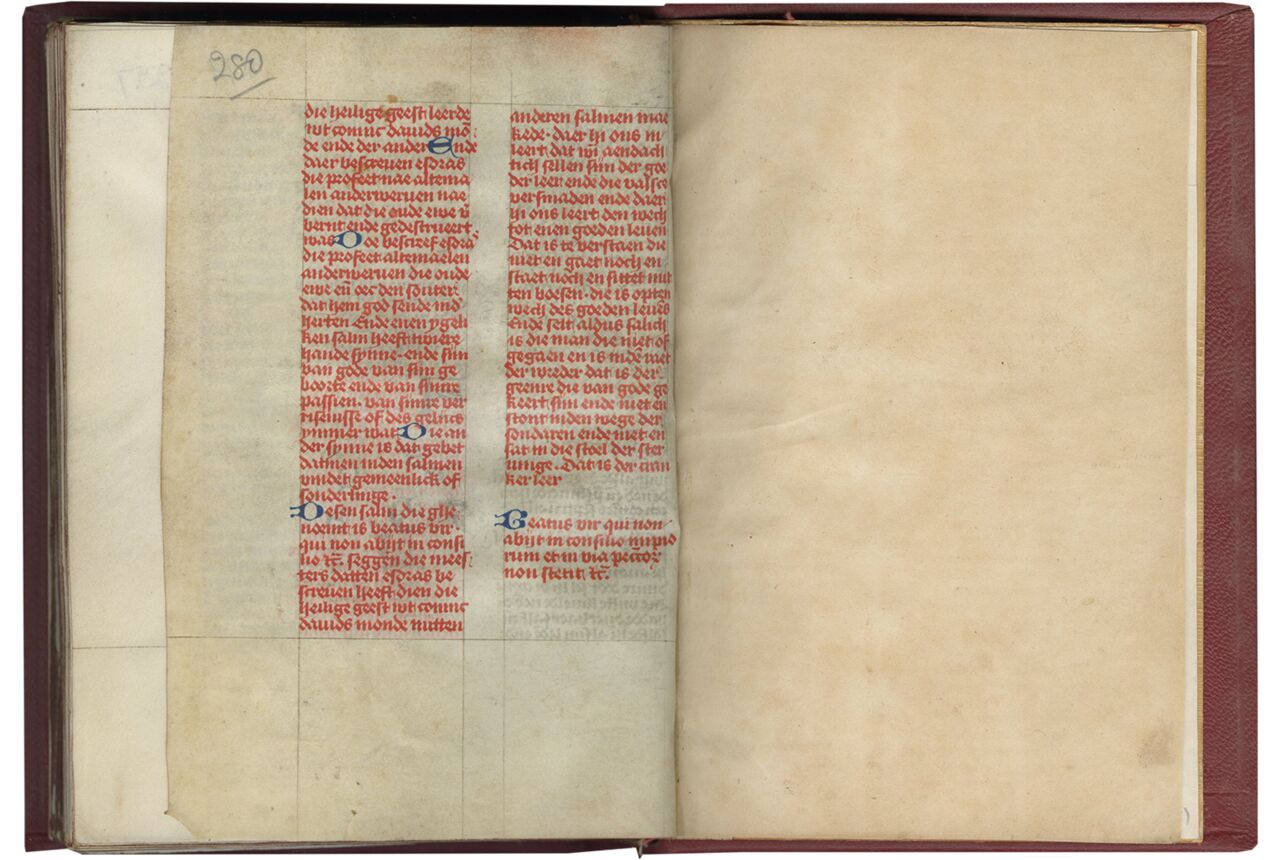 280
die heilige geest leerde
wt coninc dauids mō
de ende der ander Ende
daer bescreuen esdras
die profeet nae altema
len anderweruen nae
dien dat die oude ewe v̄
bernt ende gedestrueert
was Doe bescref esdras
die profeet altemaelen
anderweruen die oude
ewe eñ oec den souter
dat hem god sende ind̄
herten Ende enen ygeli
ken salm heeft twiere
hande synne· ende sijn
van gode van sijn ge
boorte ende van sijnre
passien· van sijnre ver
risenisse of des gelijcs
ymmer wat Die an
der synne is dat gebet
datmen inden salmen
vindet gemeenlick of
sonderlinge·
Desen salm die ghe
noemt is beatus vir·
qui non abijt in consi
lio ⁊c̄. seggen die mees
ters datten esdras be
screuen heeft dien die
heilige geest wt coninc
dauids monde mitten
anderen salmen mae
kede· daer hi ons in
leert dat wi aendach
tich sellen sijn der goe
der leer ende die valsce
versmaden ende daer
hi ons leert den wech
tot enen goeden leuen
Dat is te verstaen die
niet en gaet noch en
staet noch en sittet mit
ten boesen· die is opten
wech des goeden leuēs
Ende seit aldus salich
is die man die niet of
gegaen en is indē raet
der wreder dat is der
geenre die van gode ge
keert sijn ende niet en
stont inden wege der
sondaren ende niet en
sat in die stoel der ster
uinge. Dat is der cran
ker leer
Beatus vir qui non
abijt in consilio impio
rum et in via pecc̄oꝝ
non stetit ⁊c̄.